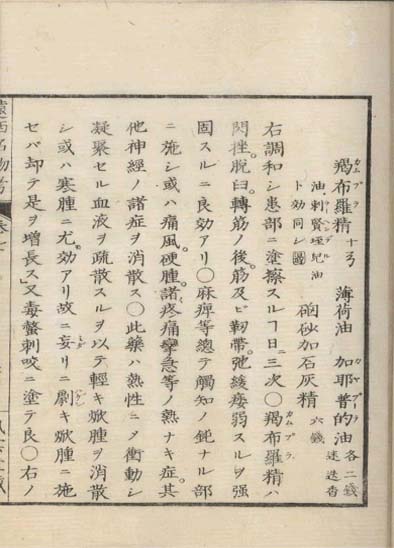 羯布羅精 十弓 薄荷油 加耶普的油 各二錢 迷迭香
カムプラ カヤプーテ
油 刺賢垤爾油 ト効同シ 硇砂加石灰精 六錢
右調和シ患部ニ塗擦スルヿ日ニ三次〇羯布羅精ハ
閃挫。脱臼。轉筋ノ後。筋及ヒ靭帶。弛緩痿弱スルヲ强
固スルニ良効アリ〇麻痺等總テ觸知ノ鈍ナル部
ニ施シ或ハ痛風。硬腫。諸疼痛攣急等ノ熱ナキ症。其
他神經ノ諸症ヲ消散ス〇此藥ハ熱性ニノ衝動シ
凝聚セル血液ヲ疏散スルヲ以テ輕キ焮腫ヲ消散
シ或ハ寒腫ニ尤。効アリ故ニ妄リニ劇キ焮腫ニ施
セバ却テ是ヲ增長ス」又毒螫刺咬ニ塗テ良〇右ノ
遠西名物考 卷七